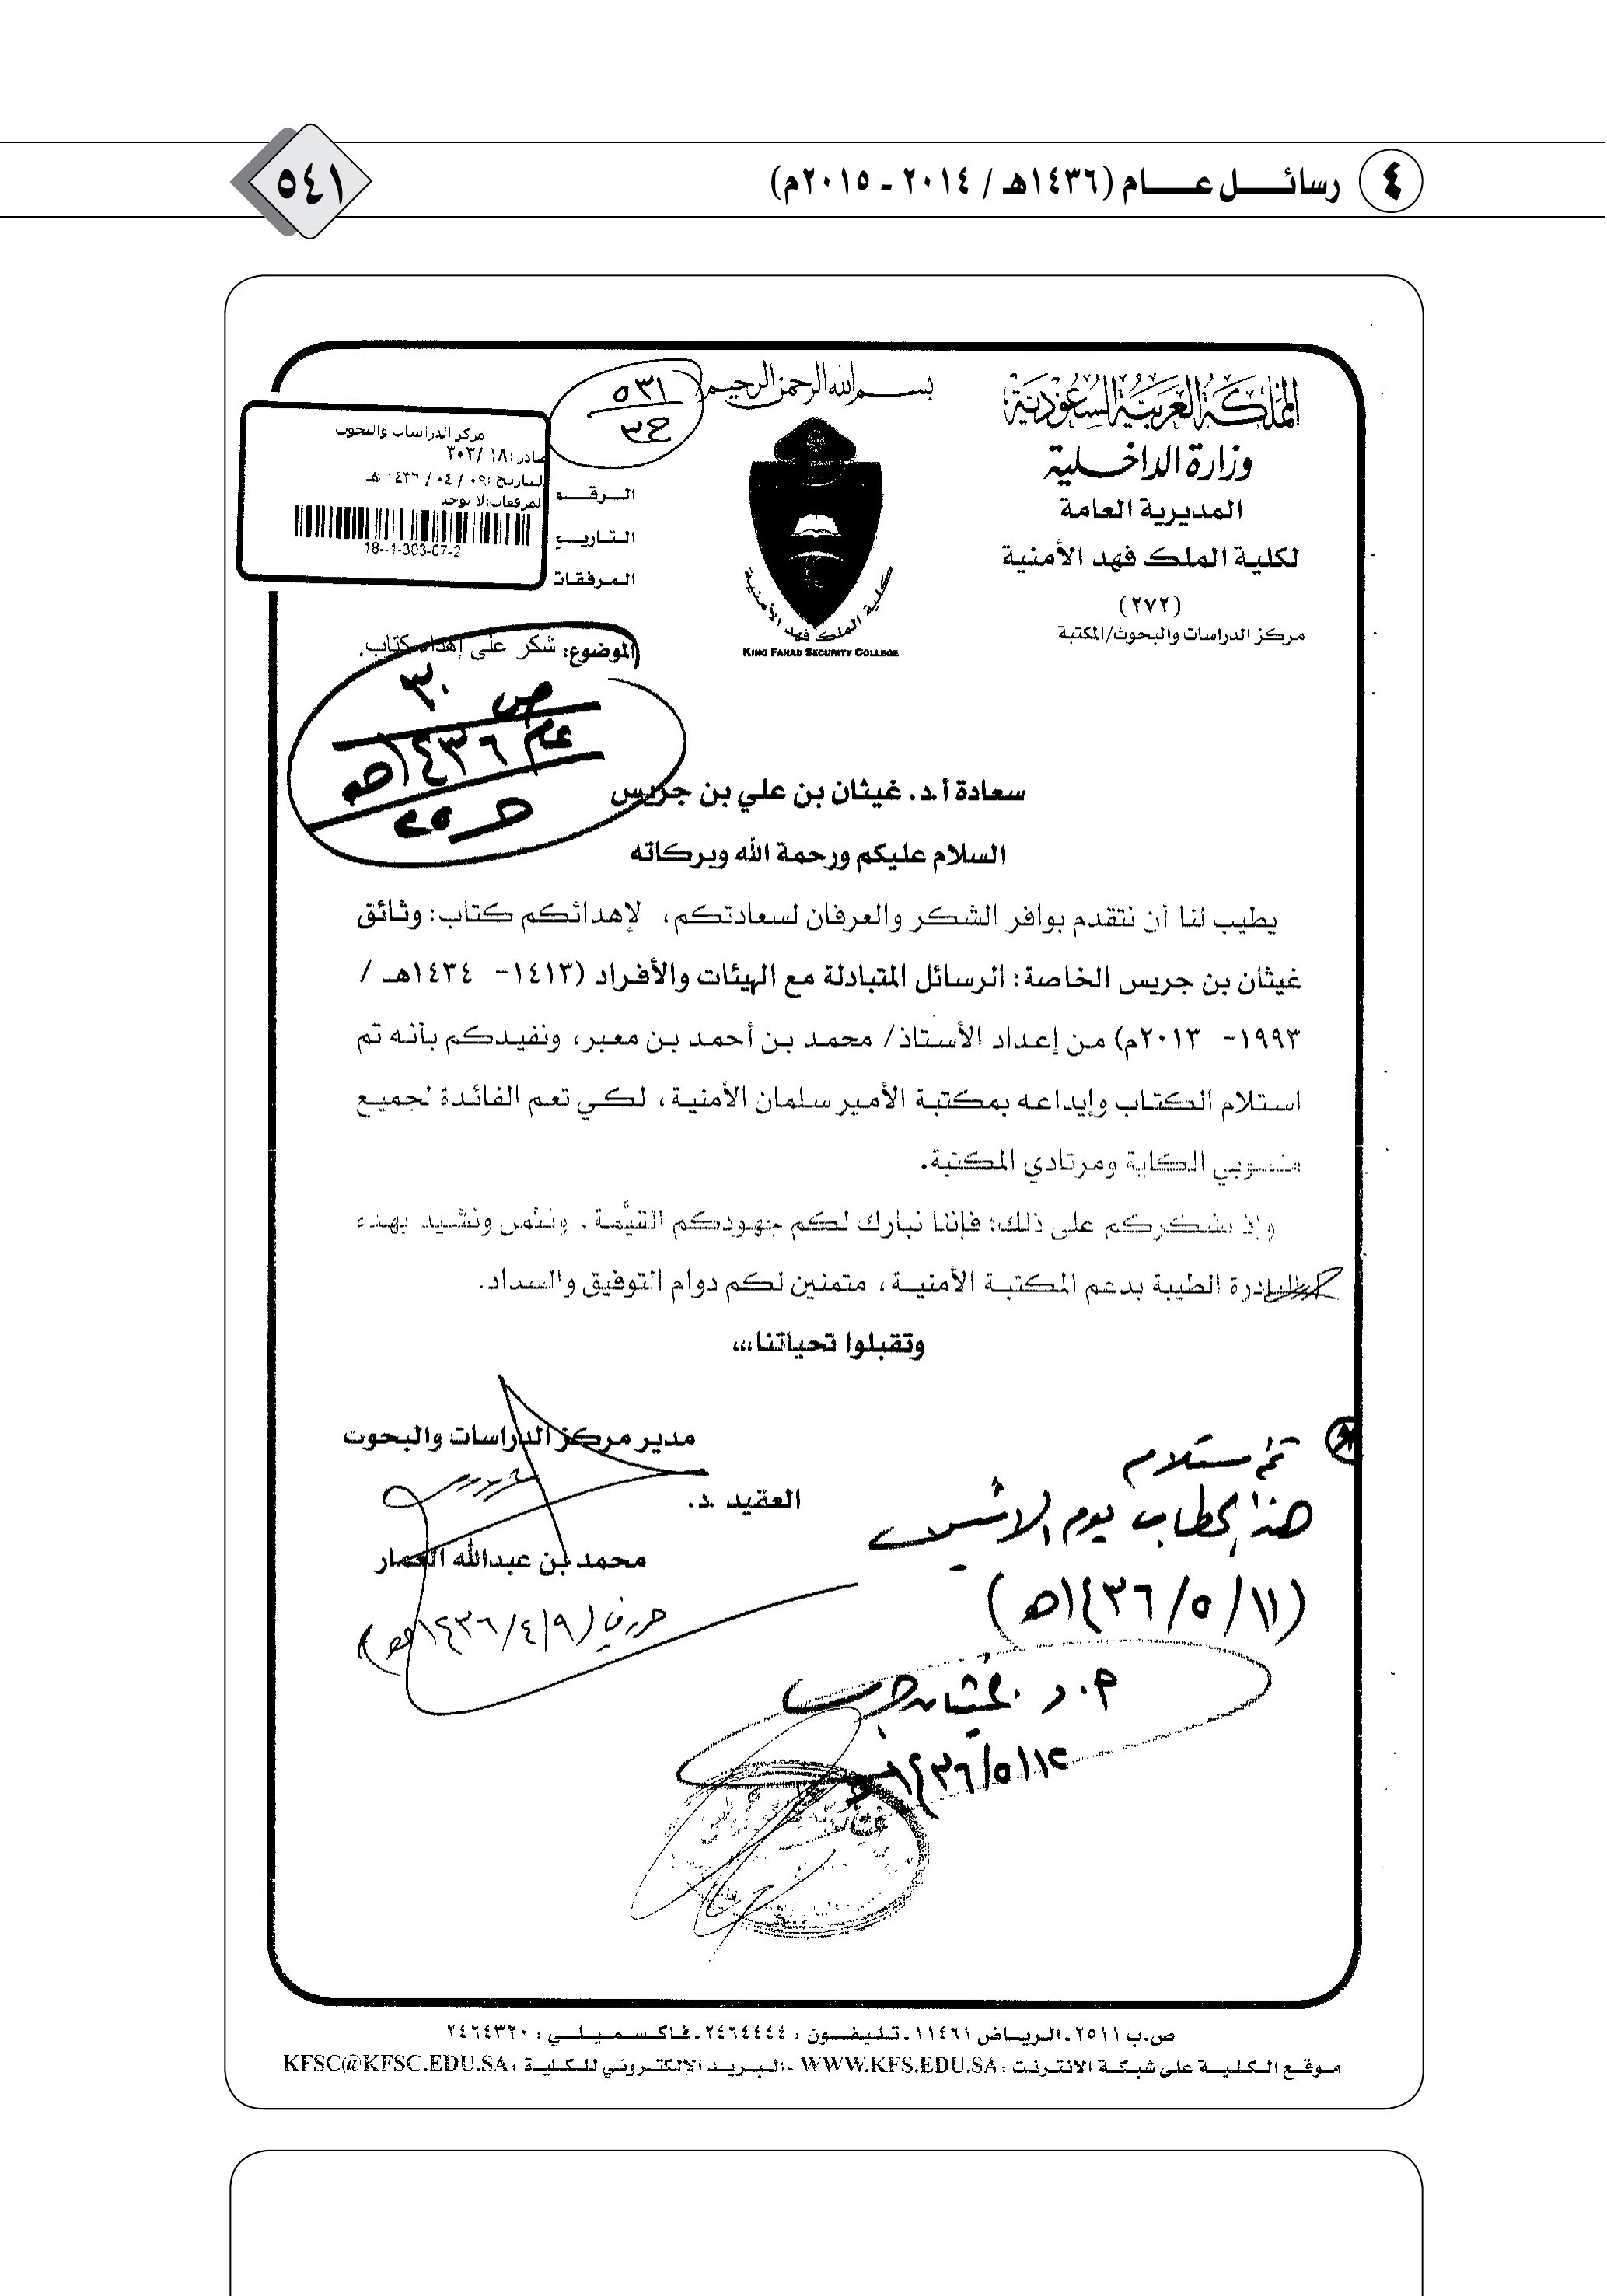 ٤ رسائل عام (١٤٣٦هـ / ٢٠١٤ - ٢٠١٥م)
٥٤١
بسم الله الرحمن الرحيم
المملكة العربية السعودية
وزارة الداخلية
المديرية العامة
لكلية الملك فهد الأمنية
(٢٧٢)
مركز الدراسات والبحوث/المكتبة
كلية الملك فهد الأمنية
KING FAHAD SECURITY COLLEGE
٥٣١
ح٣
مركز الدراسات والبحوث
صادر: ١٨ /٣٠٣
التاريخ: ٠٩ / ٠٤ / ١٤٣٦ هـ
المرفقات: لا يوجد
18--1-303-07-2
الرقم
التاريخ
المرفقات
الموضوع: شكر على إهداء كتاب.
ص ٣٠
عام ١٤٣٦هـ
ح ٢٥
سعادة أ.د. غيثان بن علي بن جريس
السلام عليكم ورحمة الله وبركاته
يطيب لنا أن نتقدم بوافر الشكر والعرفان لسعادتكم، لإهدائكم كتاب: وثائق
غيثان بن جريس الخاصة: الرسائل المتبادلة مع الهيئات والأفراد (١٤١٣- ١٤٣٤هـ /
١٩٩٣- ٢٠١٣م) من إعداد الأستاذ/ محمد بن أحمد بن معبر، ونفيدكم بأنه تم
استلام الكتاب وإيداعه بمكتبة الأمير سلمان الأمنية، لكي تعم الفائدة لجميع
منسوبي الكلية ومرتادي المكتبة.
وإذ نشكركم على ذلك؛ فإننا نبارك لكم جهودكم القيِّمة، ونثمن ونشيد بهذه
المبادرة الطيبة بدعم المكتبة الأمنية، متمنين لكم دوام التوفيق والسداد.
وتقبلوا تحياتنا،،،
مدير مركز الدراسات والبحوث
العقيد .د.
محمد بن عبدالله العمار
حرر في (٩/٤/١٤٣٦هـ)
تم استلام
هذا الخطاب يوم الاثنين
(١١/٥/١٤٣٦هـ)
أ.د. غيثان جريس
١٢/٥/١٤٣٦هـ
ص.ب ٢٥١١ - الرياض ١١٤٦١ - تليفون : ٢٤٦٤٤٤٤ - فاكسميلي : ٢٤٦٤٣٢٠
موقع الكلية على شبكة الانترنت : WWW.KFS.EDU.SA - البريد الإلكتروني للكلية : KFSC@KFSC.EDU.SA